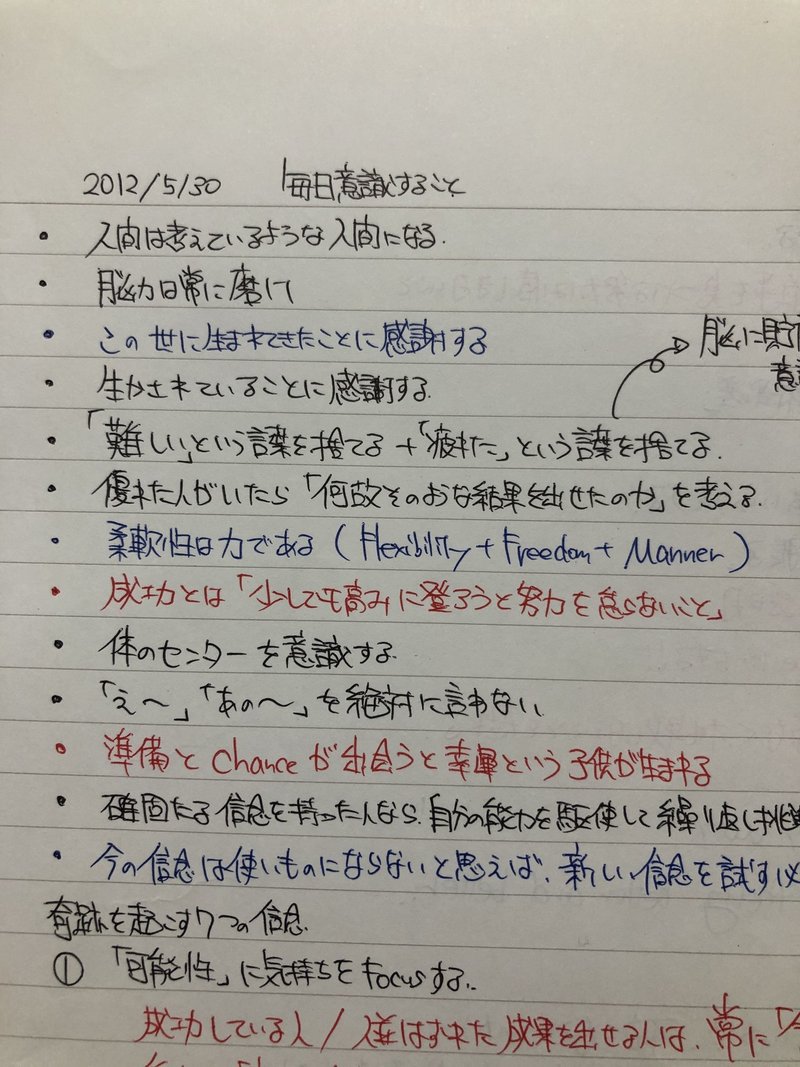 2012/5/30 毎日意識すること
・人間は考えているような人間になる.
・脳力は常に磨け
・この世に生まれてきたことに感謝する
脳に貯
意
・生かされていることに感謝する.
・「難しい」という言葉を捨てる+「疲れた」という言葉を捨てる.
・優れた人がいたら「何故そのような結果を出せたのか」を考える.
・柔軟性は力である (Flexibility + Freedom + Manner)
・成功とは「少しでも高みに登ろうと努力を怠らないこと」
・体のセンターを意識する.
・「え〜」「あの〜」を絶対に言わない.
・準備とChanceが出会うと幸運という子供が生まれる
・確固たる信念を持った人なら、自分の能力を駆使して繰り返し挑
・今の信念は使いものにならないと思えば、新しい信念を試す必
奇跡を起こす7つの信念.
① 「可能性」に気持ちをFocusする.
成功している人/人並はずれた成果を出せる人は、常に「